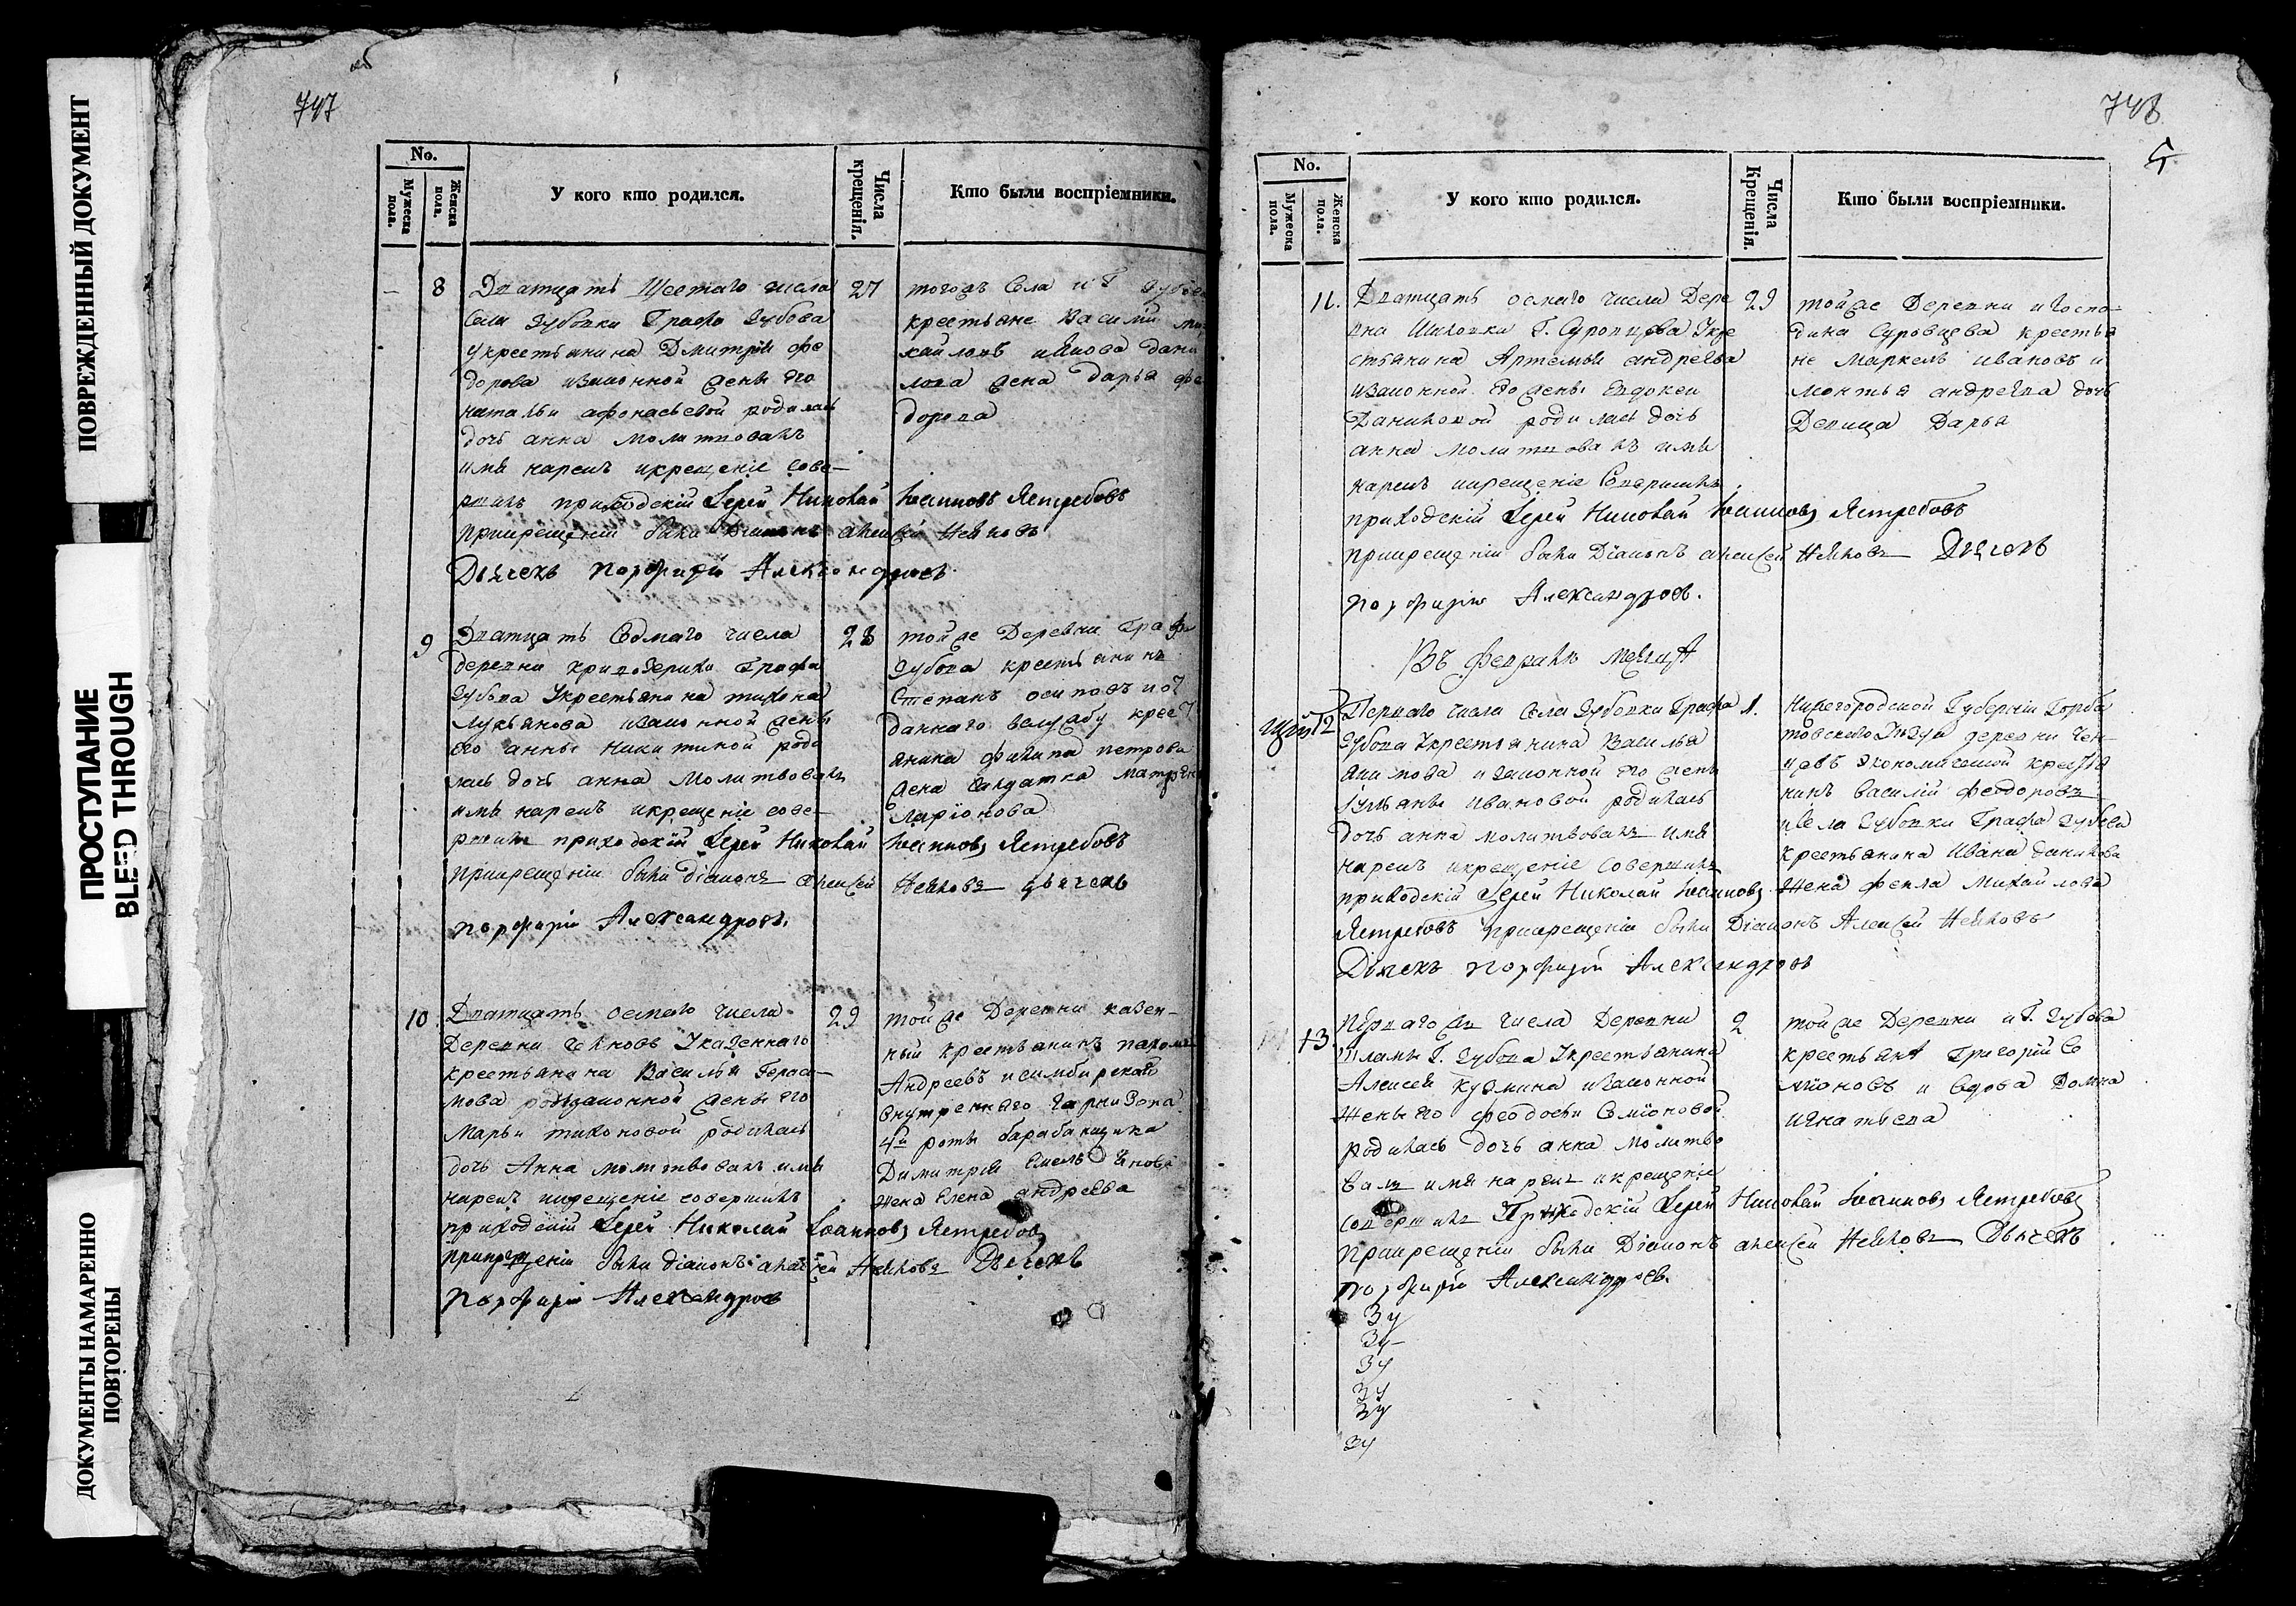 ПОВРЕЖДЕННЫЙ ДОКУМЕНТ
ПРОСТУПАНИЕ
BLEED THROUGH
ДОКУМЕНТЫ НАМАРЕННО
ПОВТОРЕНЫ
747
No.
Мужеска пола.
Женска пола.
У кого кто родился.
Числа крещенія.
Кто были воспріемники.
8
Дватцать Шестаго числа
Села Зубовки Графа Зубова
у крестьянина Дмитрія Фе
дорова и законной жены его
натальи афонасьевой родилась
дочь анна Молитвовалъ
имя нарекъ и крещеніе сове-
ршилъ приходскій Іерей Николай Іоанновъ Ястребовъ
при крещеніи были Діаконъ алексей
Дьячекъ Порфирій Александровъ
27
тогожъ Села и Г Зубова
крестьяне Василій ми
хайловъ и вдова дани
лова жена дарья фе
дорова
9
Дватцать Седмаго числа
деревни Графа
Зубова У крестьянина тихона
Лукьянова и законной жены
его анны Никитиной роди
лась дочь анна Молитвовалъ
имя нарекъ и крещеніе сове-
ршилъ приходскій Іерей Николай Іоанновъ Ястребовъ
при крещеніи были діаконъ алексей дьячекъ
порфирій Александровъ.
28
той же Деревни Графа
Зубова крестьянинъ
Степанъ осиповъ и от
даннаго в службу крест
янина филипа петрова
жена Салдатка Матрена
Ларіонова
10
Дватцать осмаго числа
Деревни У казеннаго
крестьянина Василья Гераси-
мова законной жены его
Марьи тихоновой родилась
дочь Анна молитвовалъ имя
нарекъ и крещеніе совершилъ
приходскій Іерей Николай Іоанновъ Ястребовъ
при крещеніи были діаконъ алексей Дьячекъ
Порфирій Александровъ
29
той же Деревни казен-
ный крестьянинъ пахомъ
Андреевъ и симбирскаго
внутренняго гарнизона
4й роты барабанщика
Димитрія Емельянова
жена Елена андреева
748
5
No.
Мужеска пола.
Женска пола.
У кого кто родился.
Числа Крещенія.
Кто были воспріемники.
11.
Дватцать осмаго числа Дере
вни Г. Суровцова У кре
стьянина Артемья андреева
и законной его жены Евдокеи
Даниловой родилась дочь
анна молитвовалъ имя
нарекъ и крещеніе Совершилъ
приходскій Іерей Николай Іоанновъ Ястребовъ
при крещеніи были Діаконъ алексей Дьячекъ
порфирій Александровъ.
29
той же Деревни и Госпо-
дина Суровцева крестья
не Маркелъ Ивановъ и
андреева дочь
Девица Дарья
Въ Февралѣ месяцѣ
12
Перваго числа Села Зубовки Графа
Зубова У крестьянина Василья
акимова и законной его жены
Ульяны Ивановой родилась
дочь анна молитвовалъ имя
нарекъ и крещеніе совершилъ
приходскій Іерей Николай Іоанновъ
Ястребовъ при крещеніи были Діаконъ Алексей
Дьячекъ порфирій Александровъ
1.
Нижегородской Губерніи Горба
товскаго Уезда деревни
экономической крестья
нинъ василий Феодоровъ
и Села Зубовки Графа Зубова
крестьянина Ивана данилова
жена фекла Михайлова
13.
Перваго числа Деревни
Г. Зубова У крестьянина
Алексея Кузмина и законной
жены его феодосьи Семіоновой
родилась дочь анна молитво
валъ имя нарекъ и крещеніе
Совершилъ Приходскій Іерей Николай Іоанновъ Ястребовъ
при крещеніи были Діаконъ алексей Дьячекъ
порфирій Александровъ.
2
той же Деревни и Г. Зубова
крестьянѣ Григорій Се
міоновъ и вдова Домна
игнатьева